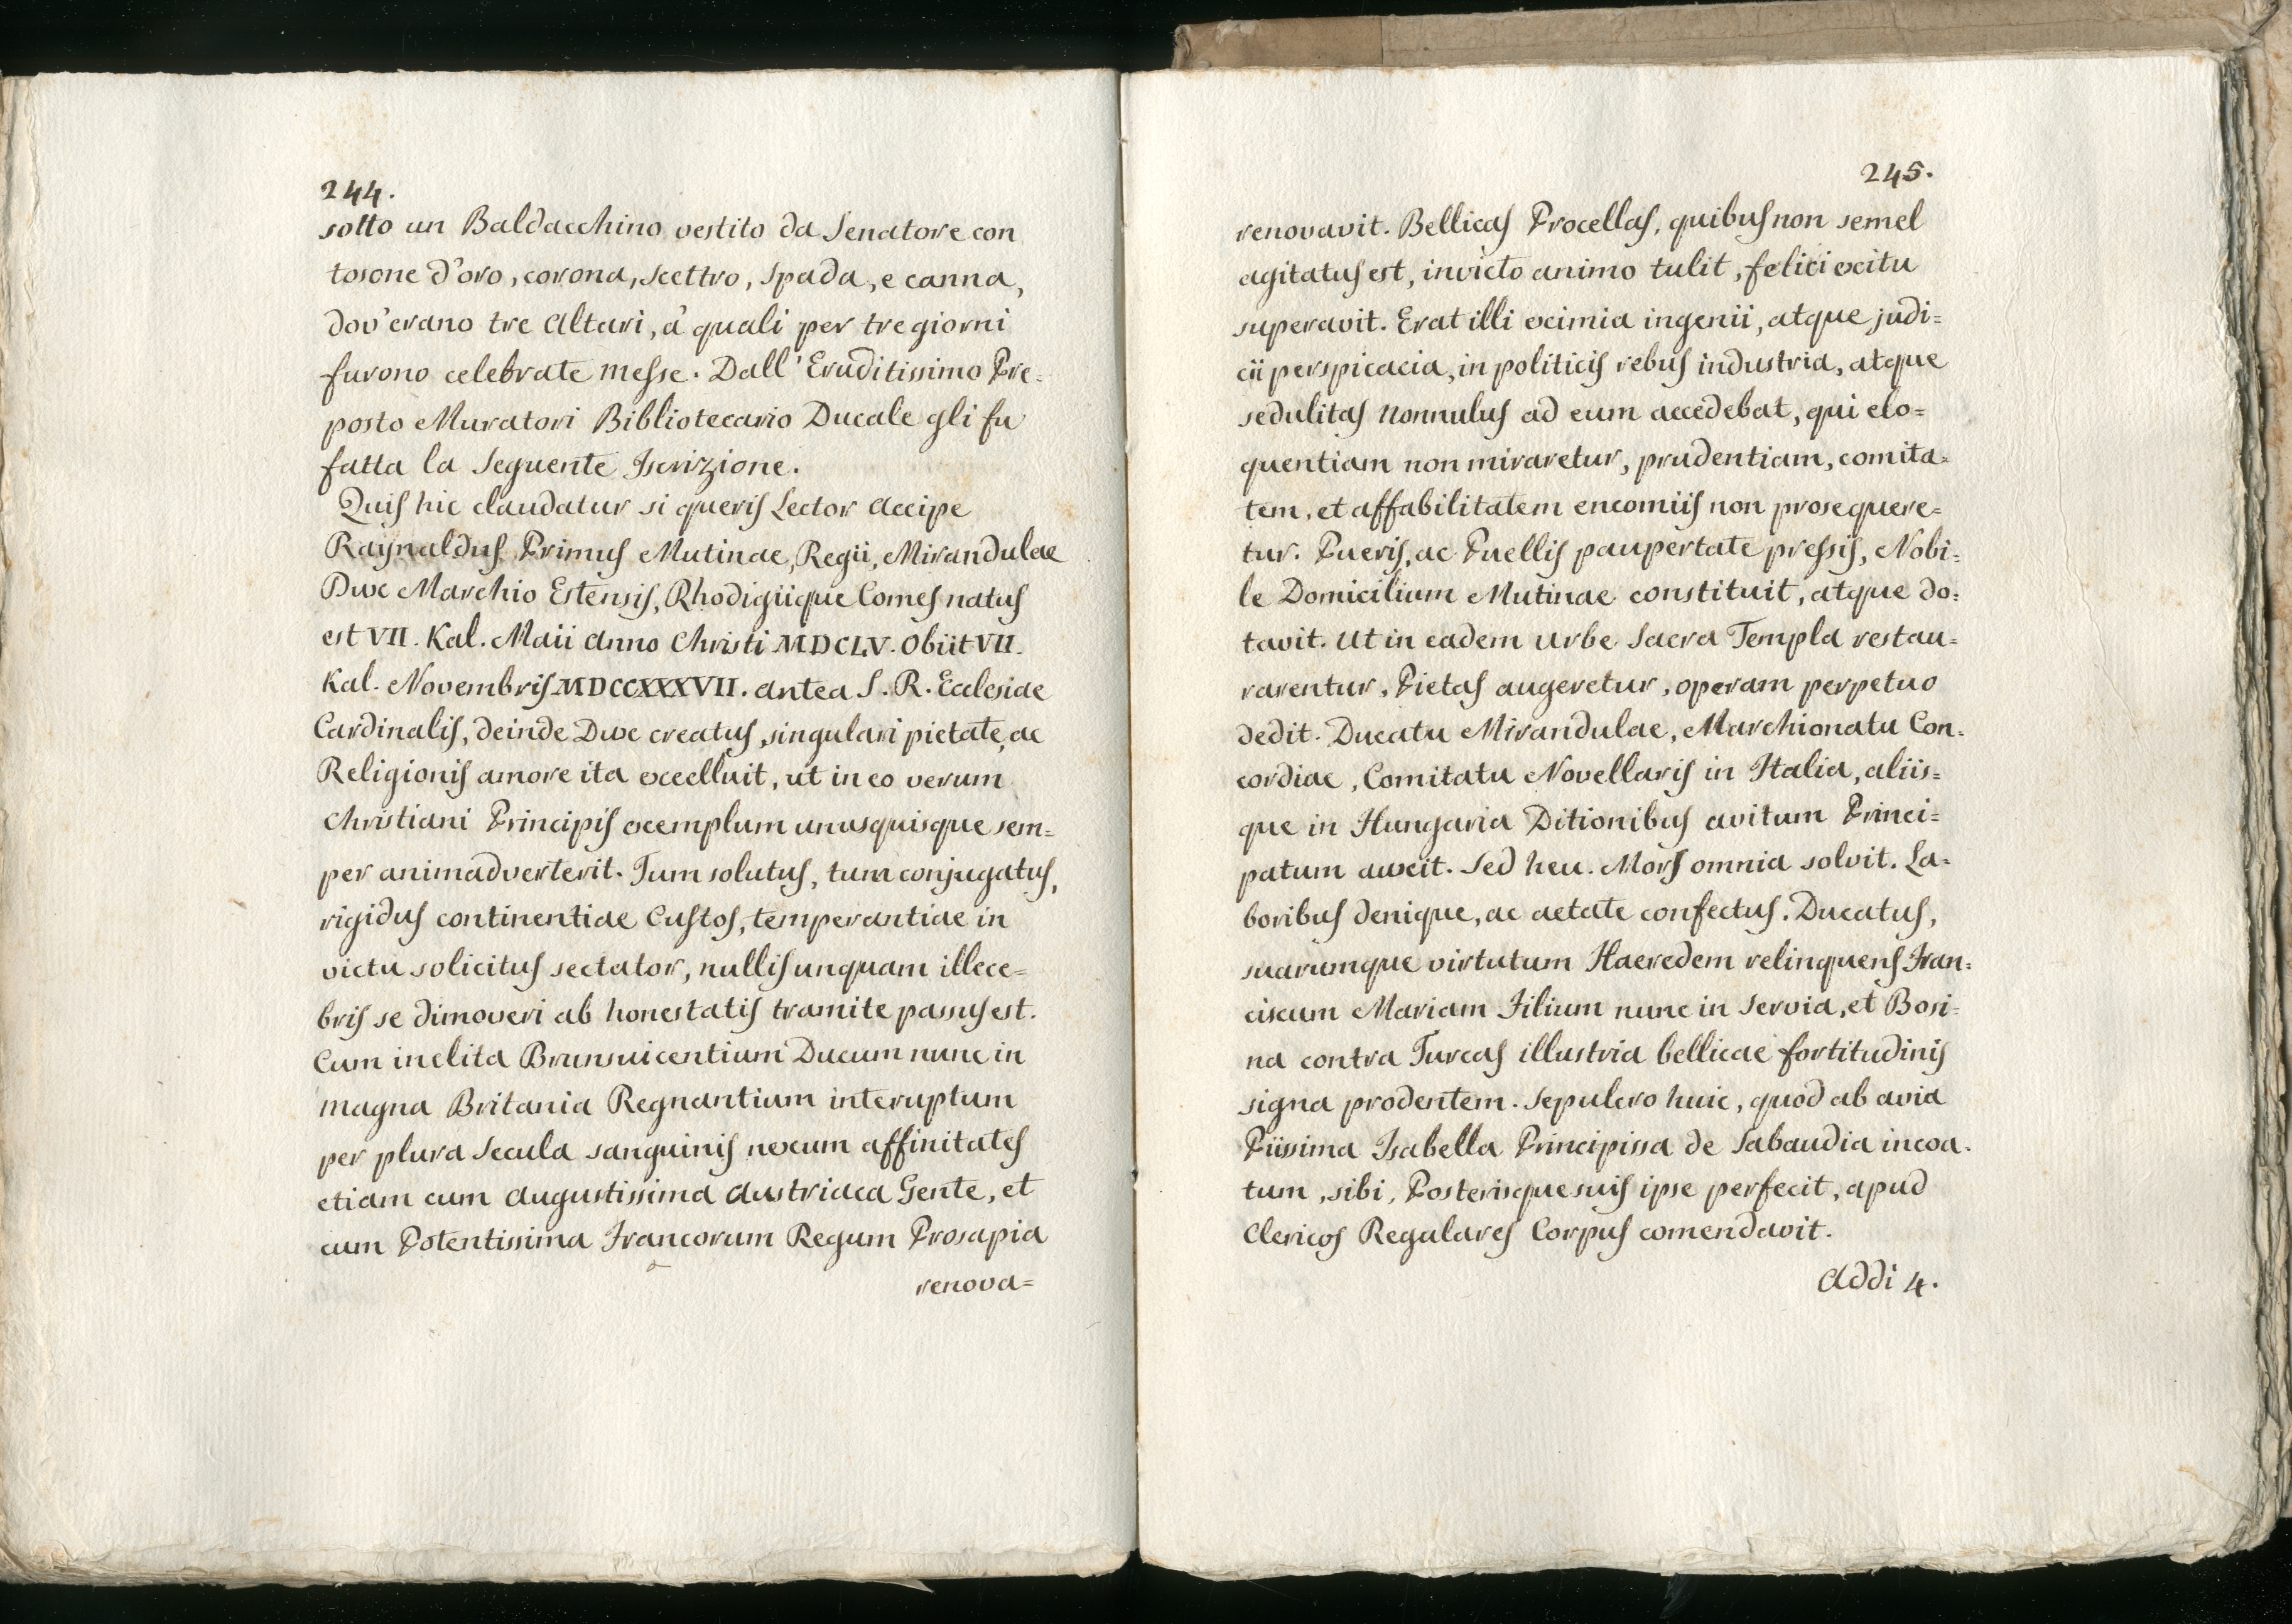 244.
sotto un Baldacchino vestito da Senatore con
tosone d'oro, corona, scettro, spada, e canna,
dov'erano tre Altari, a' quali per tre giorni
furono celebrate messe. Dall' Eruditissimo Pre=
posto Muratori Bibliotecario Ducale gli fu
fatta la seguente Iscrizione.
Quis hic claudatur si queris Lector accipe
Raynaldus Primus Mutinae, Regii, Mirandulae
Dux Marchio Estensis, Rhodigiique Comes natus
est VII. Kal. Maii Anno Christi MDCLV. Obiit VII.
Kal. Novembris MDCCXXXVII. antea S. R. Ecclesiae
Cardinalis, deinde Dux creatus, singulari pietate, ac
Religionis amore ita excelluit, ut in eo verum
Christiani Principis exemplum unusquisque sem=
per animadverterit. Tum solutus, tum conjugatus,
rigidus continentiae Custos, temperantiae in
victu solicitus sectator, nullis unquam illece=
bris se dimoveri ab honestatis tramite passus est.
Cum inclita Brunsuicentium Ducum nunc in
magna Britania Regnantium interuptum
per plura secula sanguinis nexum affinitates
etiam cum Augustissima Austriaca Gente, et
cum Potentissima Francorum Regum Prosapia
renova=
245.
renovavit. Bellicas Procellas, quibus non semel
agitatus est, invicto animo tulit, felici exitu
superavit. Erat illi eximia ingenii, atque judi=
cii perspicacia, in politicis rebus industria, atque
sedulitas nonnulus ad eum accedebat, qui elo=
quentiam non miraretur, prudentiam, comita=
tem, et affabilitatem encomiis non prosequere=
tur. Pueris, ac Puellis paupertate pressis, Nobi=
le Domicilium Mutinae constituit, atque do=
tavit. Ut in eadem Urbe Sacra Templa restau=
rarentur, Pietas augeretur, operam perpetuo
dedit. Ducatu Mirandulae, Marchionatu Con=
cordiae, Comitatu Novellaris in Italia, aliis=
que in Hungaria Ditionibus avitum Princi=
patum auxit. Sed heu. Mors omnia solvit. La=
boribus denique, ac aetate confectus. Ducatus,
suarumque virtutum Haeredem relinquens Fran=
ciscum Mariam Filium nunc in Servia, et Bosi=
na contra Turcas illustria bellicae fortitudinis
signa prodentem. Sepulcro huic, quod ab avia
Piissima Isabella Principissa de Sabaudia incoa=
tum, sibi, Posterisque suis ipse perfecit, apud
Clericos Regulares Corpus comendavit.
Addi 4.